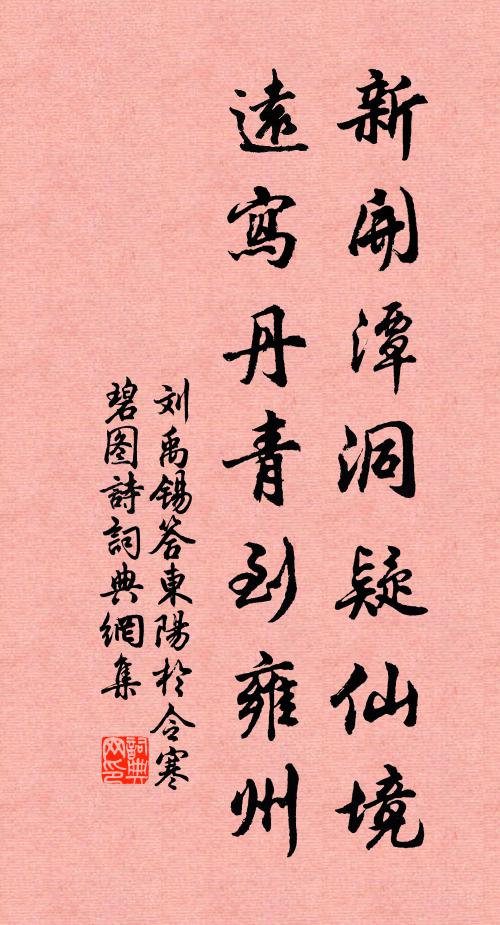 新開潭洞疑仙境
遠寫丹青到雍州
刘禹锡答東陽於令寒
碧图詩詞典網集
詞典網印